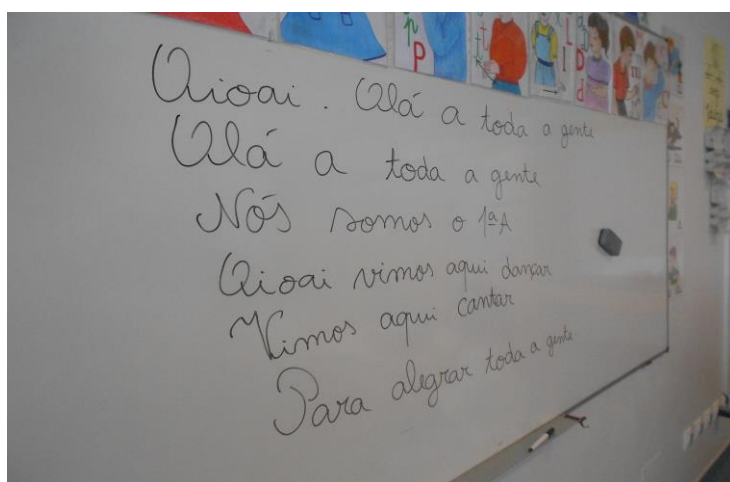 Oioai. Olá a toda a gente
Olá a toda a gente
Nós somos o 1ºA
Oioai vimos aqui dançar
Vimos aqui cantar
Para alegrar toda a gente